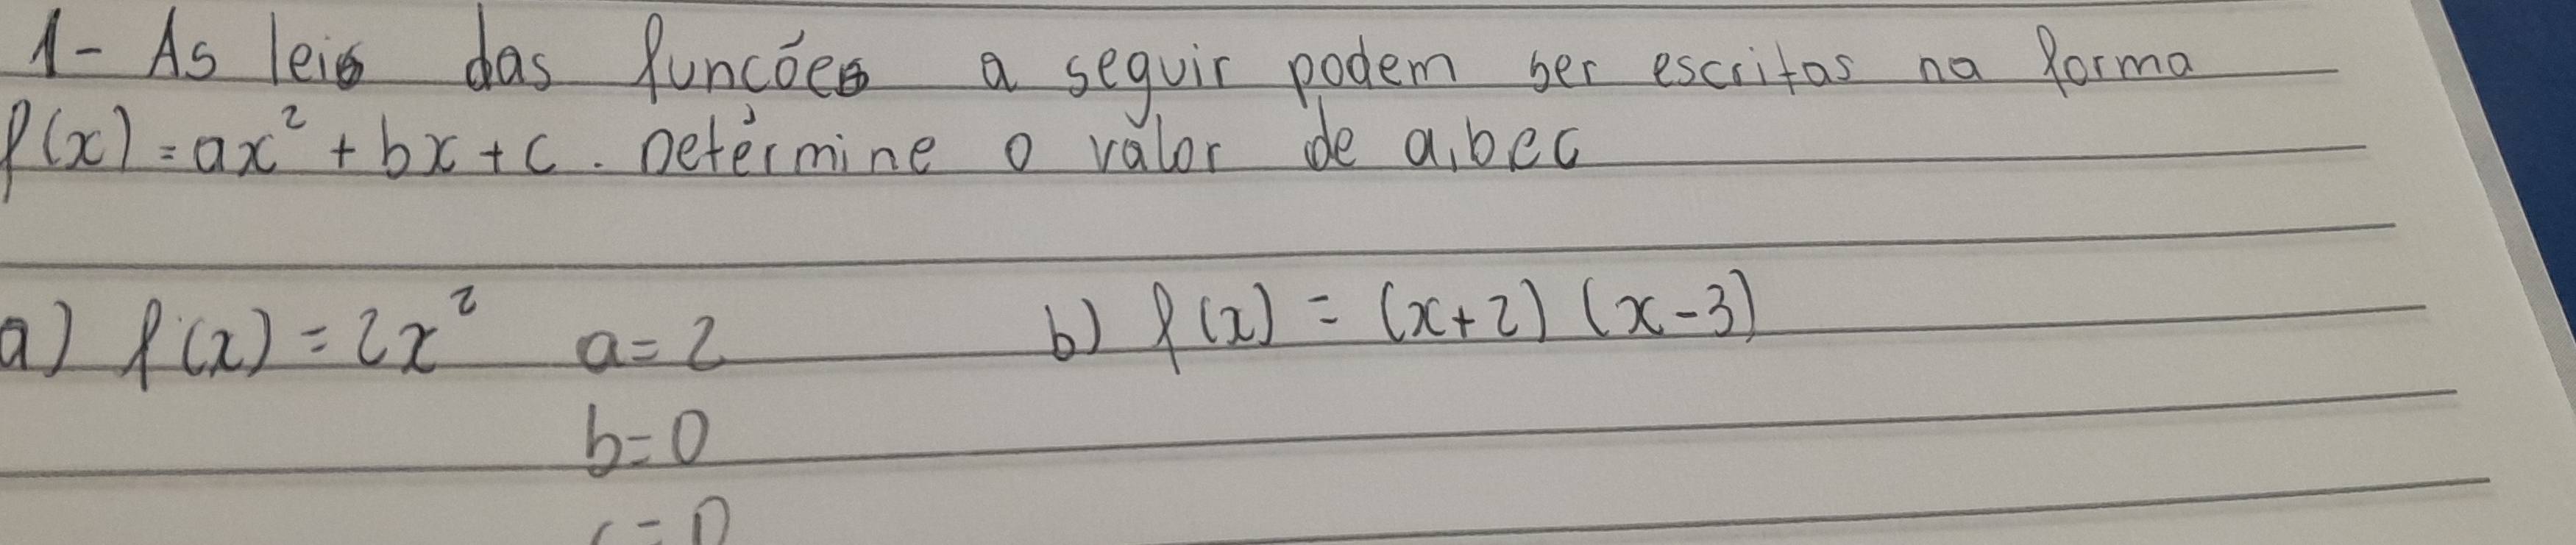 1- As leis das funcões a seguir podem ser escritas na forma
f(x) = ax² + bx + c . Determine o valor de a, b e c
a) f(x) = 2x² a = 2 b) f(x) = (x+2) (x-3)
b = 0
c = 0